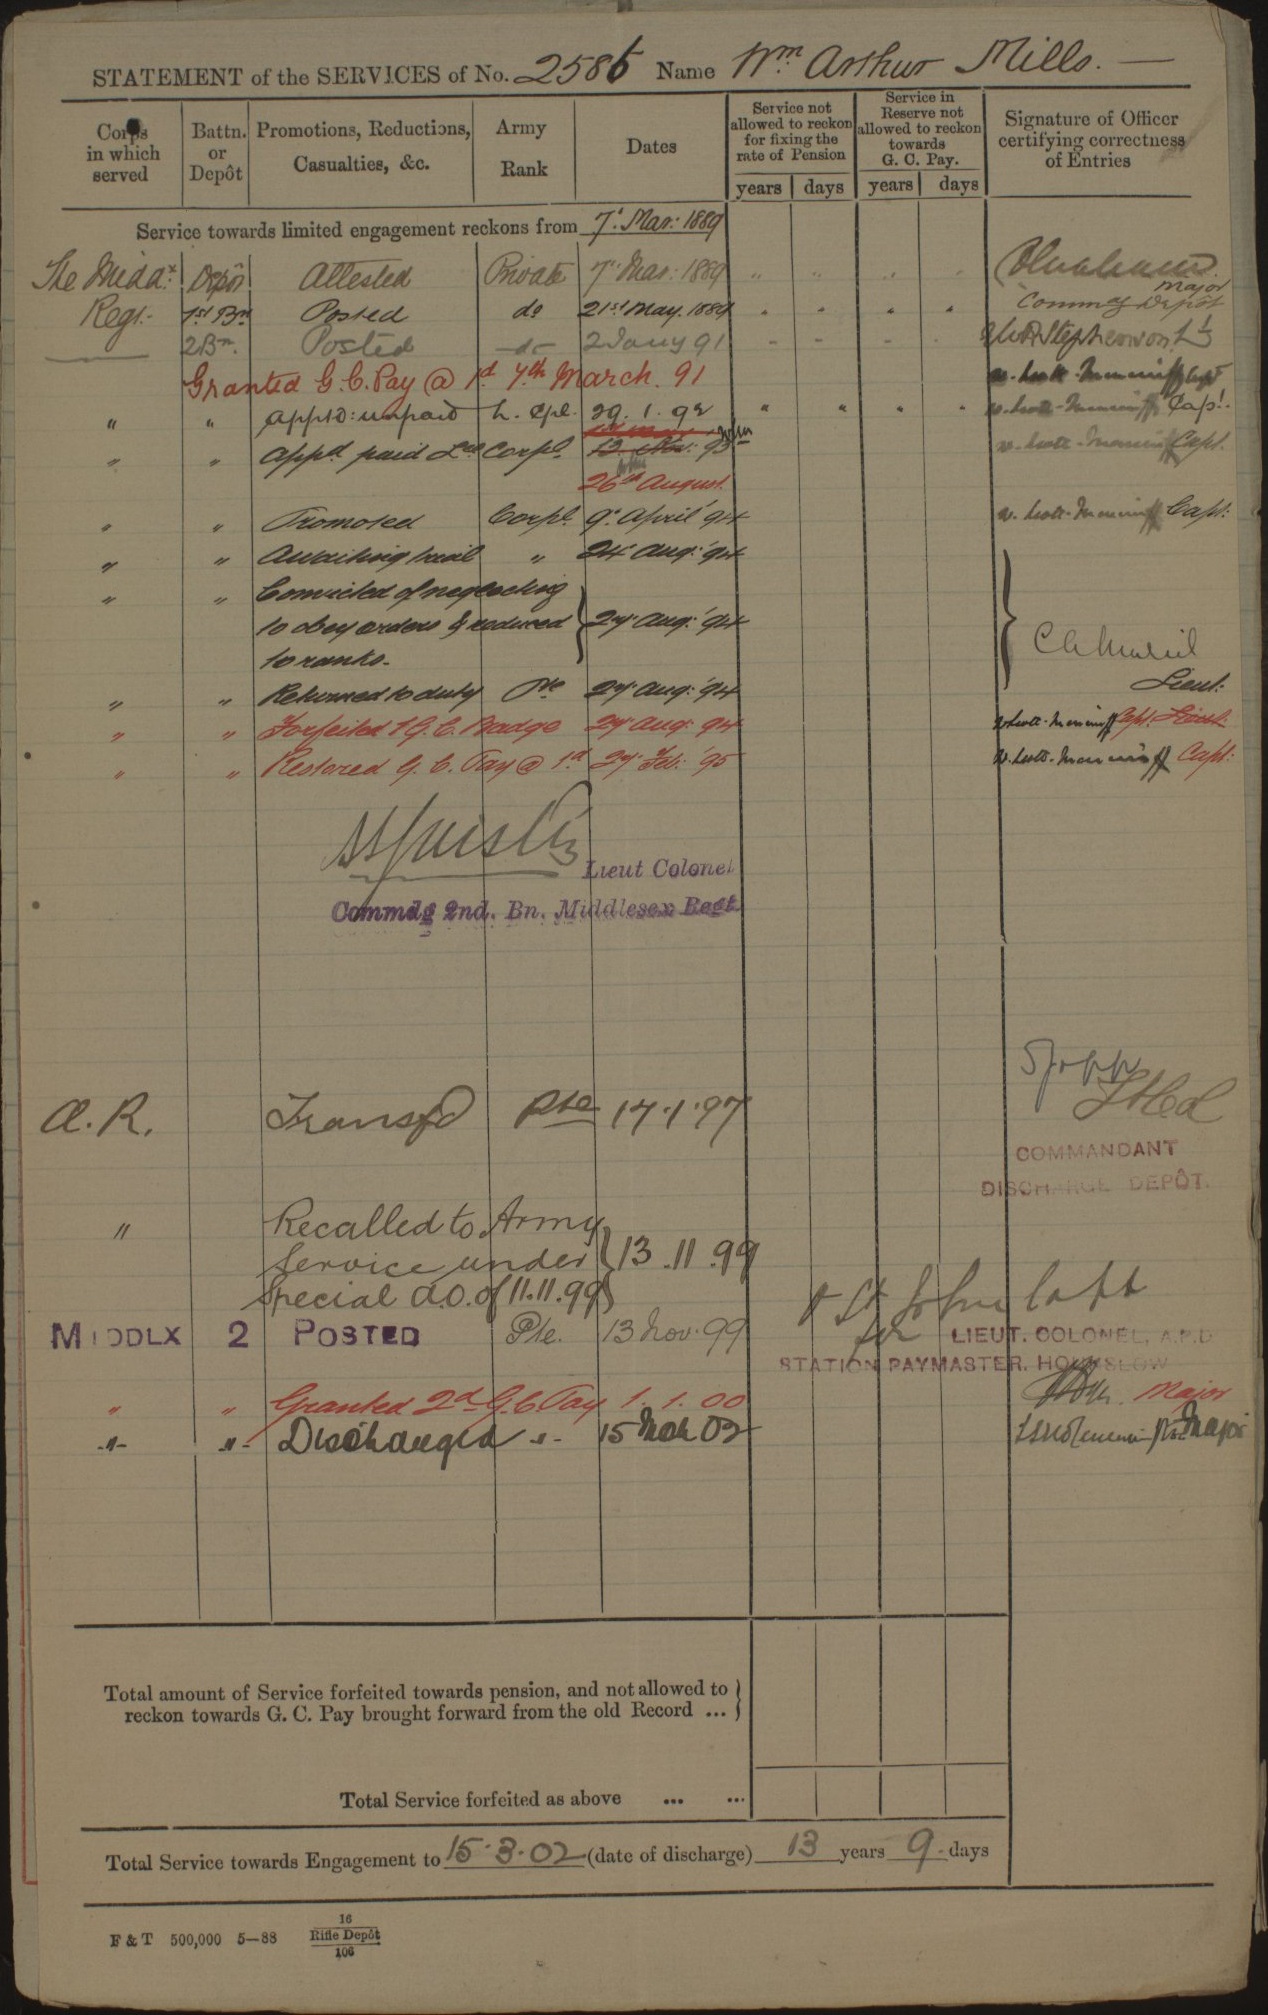 STATEMENT of the SERVICES of No. 2585 Name Wm. Arthur Mills. —
Corps in which served
Battn. or Depôt
Promotions, Reductions, Casualties, &c.
Army Rank
Dates
Service not allowed to reckon for fixing the rate of Pension
years days
Service in Reserve not allowed to reckon towards G. C. Pay.
years days
Signature of Officer certifying correctness of Entries
Service towards limited engagement reckons from 7. Mar: 1889
The Middx: Depôt Attested Private 7 Mar: 1889 " " " "
Major
Regt. 1st Bn Posted do 21st May 1889 " " " " Commg Depôt
2 Bn. Posted do 2 Jany 91 - - - - Stephenson Lt
Granted G. C. Pay @ 1d 7th March. 91
" " appt: unpaid L. Cpl. 29. 1. 92 " " " " Capt.
" " appd paid Lce Corpl. 93 Capt.
26th August
" " Promoted Corpl. 9. April '94 Capt:
" " Awaiting trial " 24 Aug: '94
" " Convicted of neglecting
to obey orders & reduced 27 Aug: '94
to ranks.
Lieut:
" " Returned to duty Pte 27 Aug: '94
" " Forfeited 1 G. C. Badge 27 Aug: 94 Capt: Lieut:
" " Restored G. C. Pay @ 1d 27 Feb: '95 Capt:
Lieut Colonel
Commdg 2nd. Bn. Middlesex Regt.
A. R. Transfd Pte 17.1.97
COMMANDANT
DISCHARGE DEPÔT.
" Recalled to Army
Service under 13.11.99
Special A.O. of 11.11.99
MIDDLX 2 POSTED Pte. 13 Nov. 99
for LIEUT. COLONEL, A.P.D
STATION PAYMASTER. HOUNSLOW
" " Granted 2d G. C Pay 1. 1. 00 Major
-"- -"- Discharged -"- 15 Mch 02 Major
Total amount of Service forfeited towards pension, and not allowed to
reckon towards G. C. Pay brought forward from the old Record ...
Total Service forfeited as above ... ...
Total Service towards Engagement to 15.3.02 (date of discharge) 13 years 9 days
F & T 500,000 5—88 16
Rifle Depôt
106